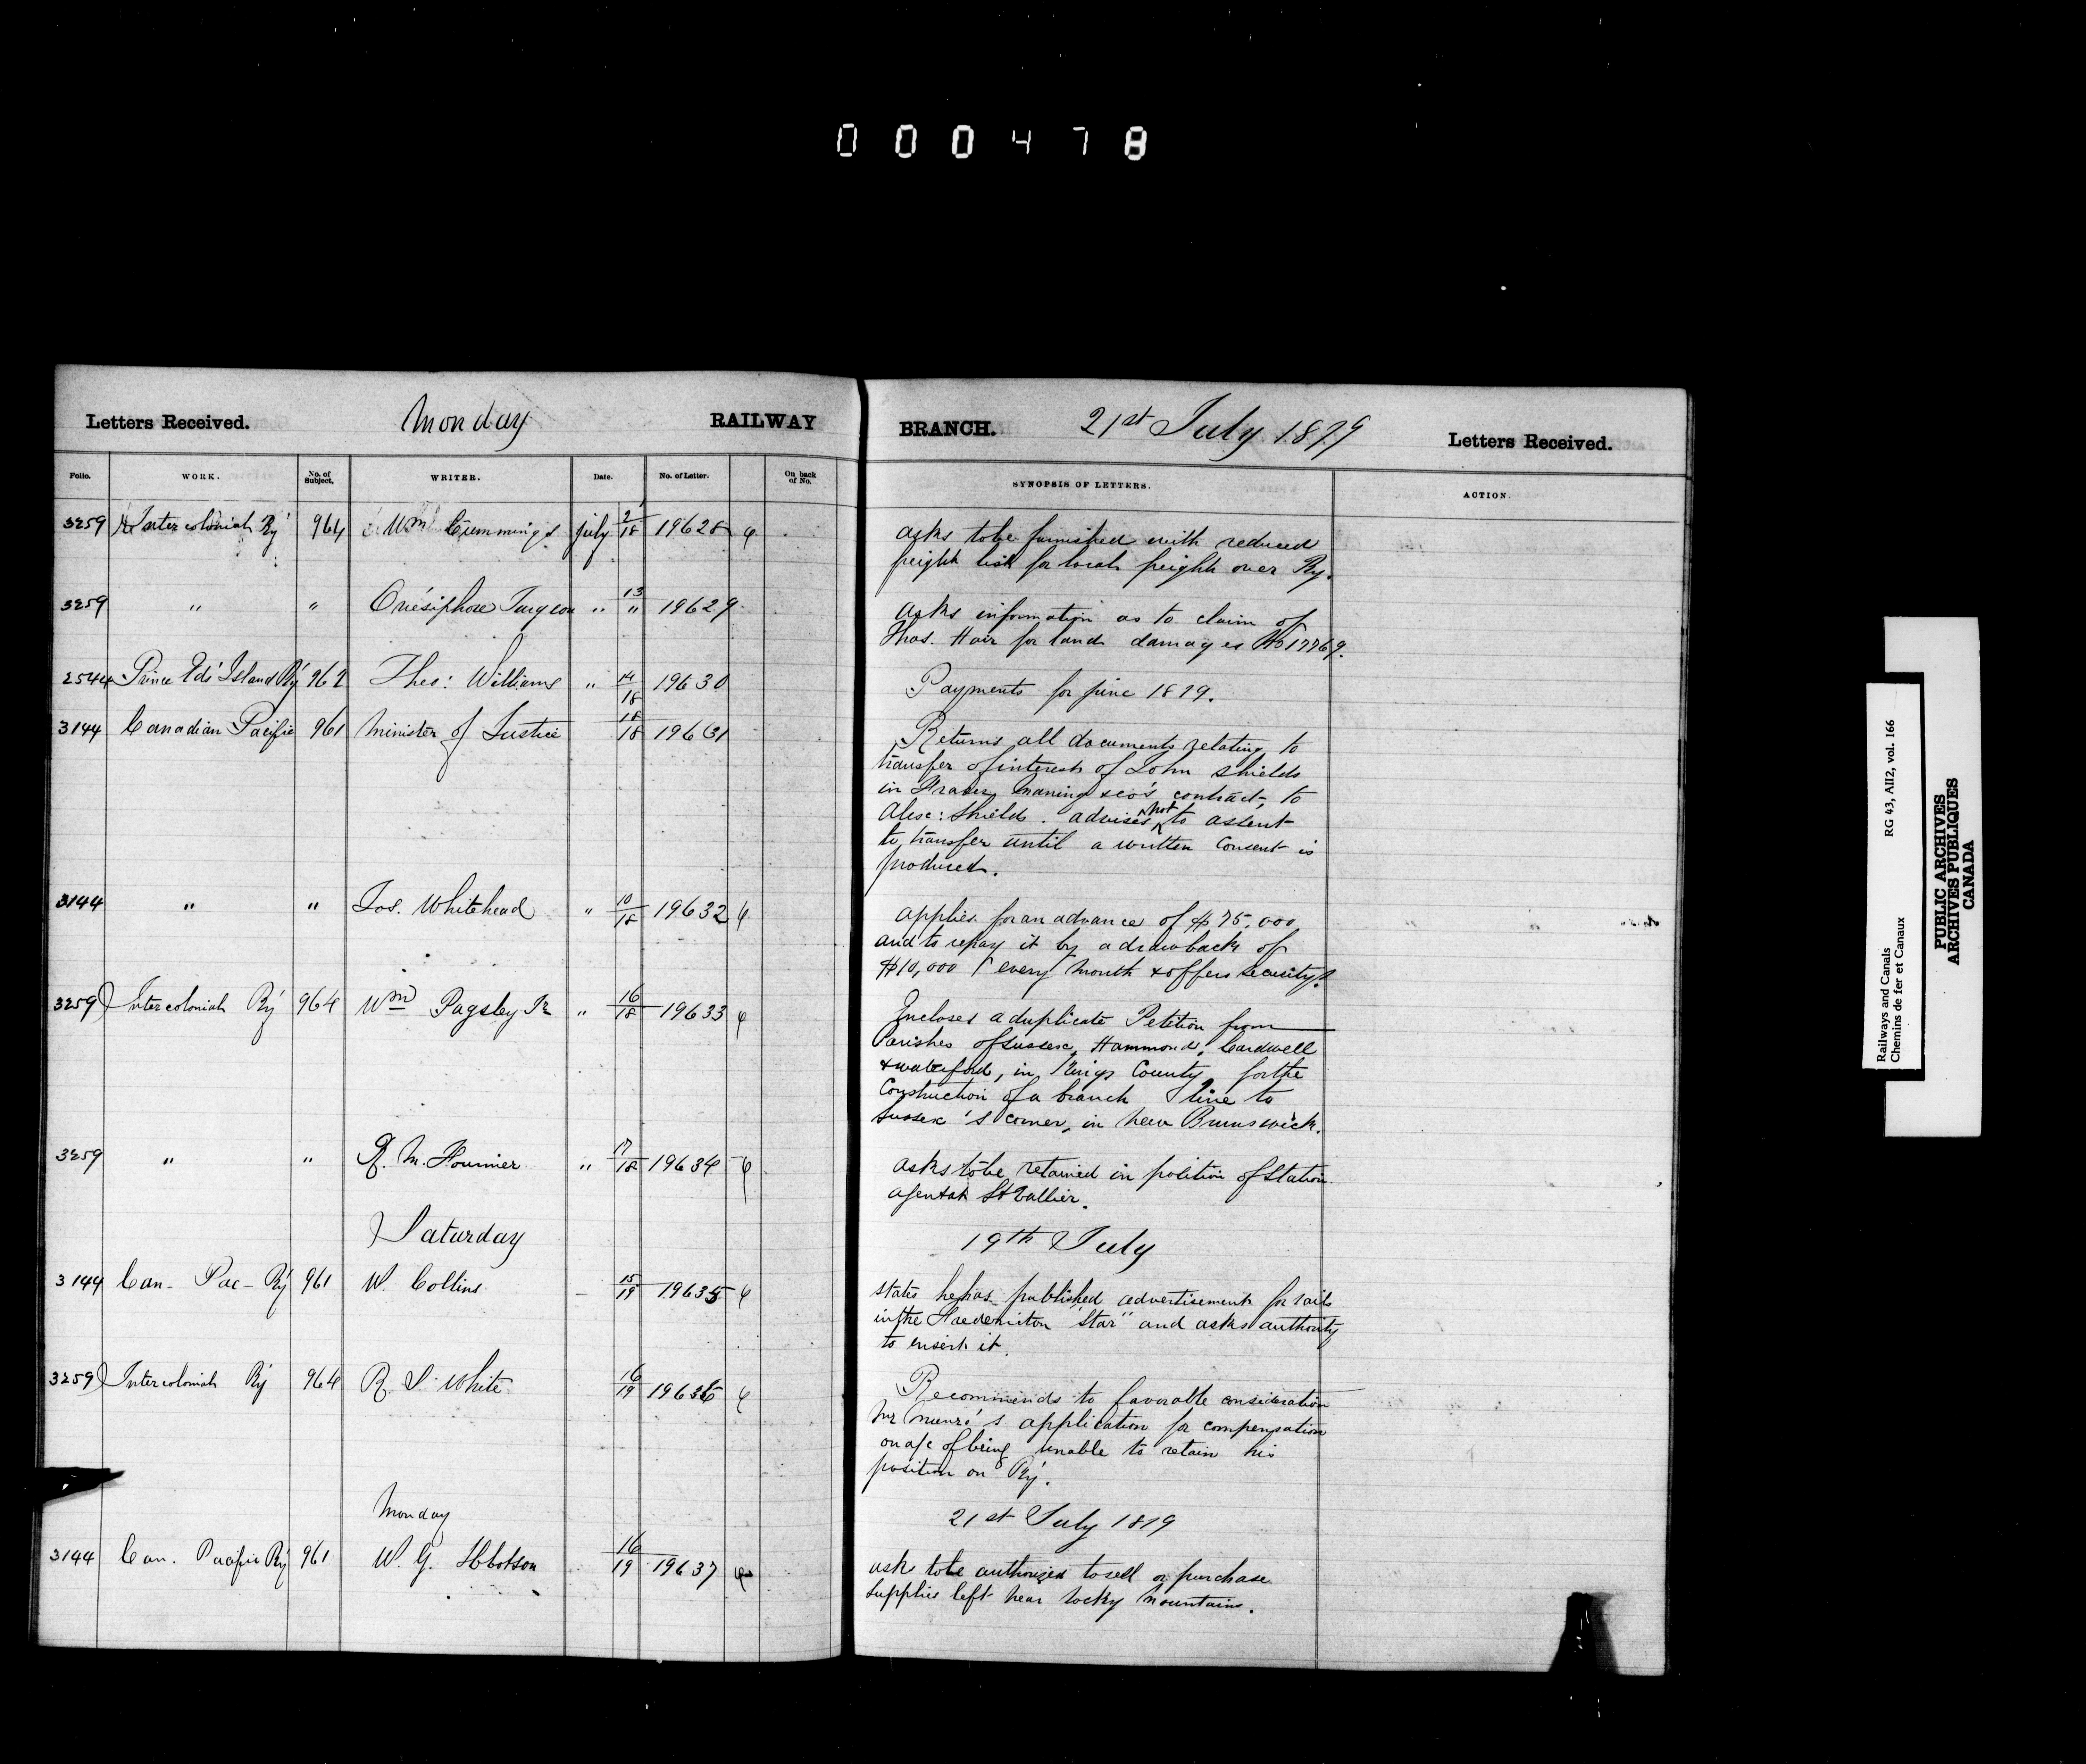 0 0 0 4 7 8
Letters Received. Monday RAILWAY
Folio. WORK. No. of Subject. WRITER. Date. No. of Letter. On back of No.
3259 Intercolonial Ry 964 Wm Cummings July 2/18 19628
3259 " " Onésiphore Turgeon " 13/" 19629
2544 Prince Ed's Island Ry 962 Theo: Williams " 14/18 19630
3144 Canadian Pacific 961 Minister of Justice 18/18 19631
3144 " " Jos. Whitehead " 10/18 19632
3259 Intercolonial Ry 964 Wm Pugsley Jr " 16/18 19633
3259 " " R. M. Fournier " 17/18 19634
Saturday
3144 Can- Pac- Ry 961 W. Collins - 15/19 19635
3259 Intercolonial Ry 964 R. S. White 16/19 19636
Monday
3144 Can. Pacific Ry 961 W. G. Ibbotson 16/19 19637
BRANCH. 21st July 1879 Letters Received.
SYNOPSIS OF LETTERS. ACTION.
asks to be furnished with reduced
freight list for local freight over Ry.
asks information as to claim of
Thos. Hair for land damages No 17769.
Payments for June 1879.
Returns all documents relating to
transfer of interest of John Shields
in Fraser Maning & Co's contract, to
Alex: Shield. advises not to assent
to transfer until a written consent is
produced.
applies for an advance of $75,000
and to repay it by a drawback of
$10,000 every month & offers security.
Incloses a duplicate Petition from
Parishes of Sussex, Hammond, Cardwell
& Waterford, in Kings County, for the
Construction of a branch line to
Sussex's corner, in New Brunswick.
asks to be retained in position of Station
agent at St Vallier.
19th July
states he has published advertisement for rails
in the Fredericton "Star" and asks authority
to insert it.
Recommends to favorable consideration
Mr Munro's application for compensation
on a/c of being unable to retain his
position on Ry.
21st July 1879
ask to be authorized to sell or purchase
supplies left near rocky Mountains.
Railways and Canals RG 43, AII2, vol. 166
Chemins de fer et Canaux
PUBLIC ARCHIVES
ARCHIVES PUBLIQUES
CANADA